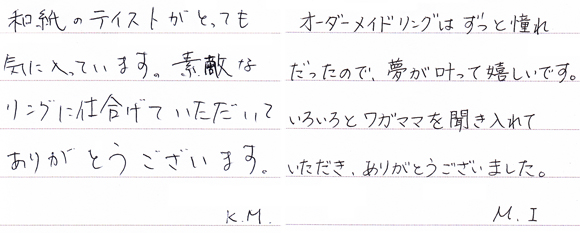 和紙のテイストがとっても
気に入っています。素敵な
リングに仕上げていただいて
ありがとうございます。
K.M.
オーダーメイドリングはずっと憧れ
だったので、夢が叶って嬉しいです。
いろいろとワガママを聞き入れて
いただき、ありがとうございました。
M.I